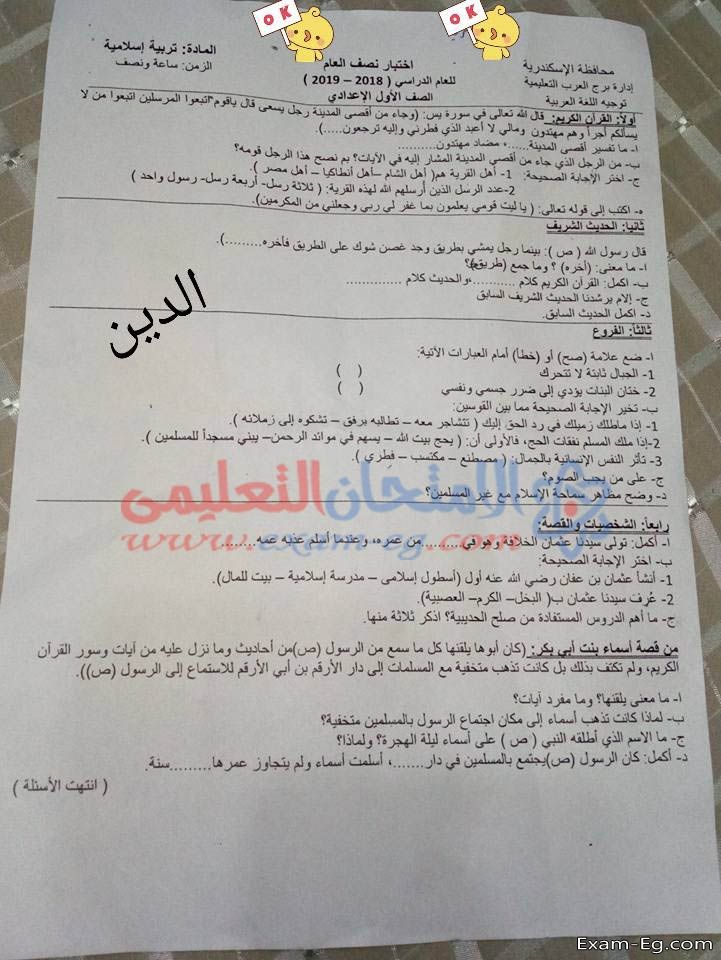 OK
OK
محافظة الإسكندرية
إدارة برج العرب التعليمية
توجيه اللغة العربية
اختبار نصف العام
للعام الدراسي ( 2018 – 2019 )
الصف الأول الإعدادي
المادة: تربية إسلامية
الزمن: ساعة ونصف
أولاً: القرآن الكريم: قال الله تعالى في سورة يس: (وجاء من أقصى المدينة رجل يسعى قال ياقوم اتبعوا المرسلين اتبعوا من لا
يسألكم أجراً وهم مهتدون ومالي لا أعبد الذي فطرني وإليه ترجعون.....).
ا- ما تفسير أقصى المدينة......، مضاد مهتدون..........
ب- من الرجل الذي جاء من أقصي المدينة المشار إليه في الآيات؟ بم نصح هذا الرجل قومه؟
ج- اختر الإجابة الصحيحة: 1- أهل القرية هم( أهل الشام – أهل أنطاكيا – أهل مصر ).
2-عدد الرسل الذين أرسلهم الله لهذه القرية: ( ثلاثة رسل- أربعة رسل- رسول واحد )
ه- اكتب إلى قوله تعالى: ( يا ليت قومي يعلمون بما غفر لي ربي وجعلني من المكرمين).
ثانيا: الحديث الشريف
قال رسول الله ( ص ): بينما رجل يمشي بطريق وجد غصن شوك على الطريق فأخره.........).
ا- ما معنى: (أخره) ؟ وما جمع (طريق)؟
ب- اكمل: القرآن الكريم كلام ..........،والحديث كلام .............
ج- إلام يرشدنا الحديث الشريف السابق
د- اكمل الحديث السابق.
الدين
ثالثاً: الفروع
ا- ضع علامة (صح) أو (خطأ) أمام العبارات الآتية:
1- الجبال ثابتة لا تتحرك ( )
2- ختان البنات يؤدي إلى ضرر جسمي ونفسي ( )
ب- تخير الإجابة الصحيحة مما بين القوسين:
1- إذا ماطلك زميلك في رد الحق إليك ( تتشاجر معه – تطالبه برفق – تشكوه إلى زملانه ).
2-إذا ملك المسلم نفقات الحج، فالأولى أن: ( يحج بيت الله – يسهم في موائد الرحمن– يبني مسجداً للمسلمين ).
3- تأثر النفس الإنسانية بالجمال: ( مصطنع – مكتسب – فطري ).
ج- على من يجب الصوم؟
د- وضح مظاهر سماحة الإسلام مع غير المسلمين؟
الامتحان التعليمى
www.exam-eg.com
رابعاً: الشخصيات والقصة:
ا- أكمل: تولى سيدنا عثمان الخلافة وهو في.........من عمره، وعندما أسلم عذبه عمه.........
ب- اختر الإجابة الصحيحة:
1- أنشأ عثمان بن عفان رضي الله عنه أول (أسطول إسلامى – مدرسة إسلامية – بيت للمال).
2- عُرف سيدنا عثمان ب( البخل – الكرم– العصبية).
ج- ما أهم الدروس المستفادة من صلح الحديبية؟ اذكر ثلاثة منها.
من قصة أسماء بنت أبي بكر: (كان أبوها يلقنها كل ما سمع من الرسول (ص)من أحاديث وما نزل عليه من آيات وسور القرآن
الكريم، ولم تكتف بذلك بل كانت تذهب متخفية مع المسلمات إلى دار الأرقم بن أبي الأرقم للاستماع إلى الرسول (ص)).
ا- ما معنى يلقنها؟ وما مفرد آيات؟
ب- لماذا كانت تذهب أسماء إلى مكان اجتماع الرسول بالمسلمين متخفية؟
ج- ما الاسم الذي أطلقه النبي ( ص ) على أسماء ليلة الهجرة؟ ولماذا؟
د- أكمل: كان الرسول (ص)يجتمع بالمسلمين في دار.......، أسلمت أسماء ولم يتجاوز عمرها.........سنة.
( انتهت الأسئلة )
Exam-Eg.com